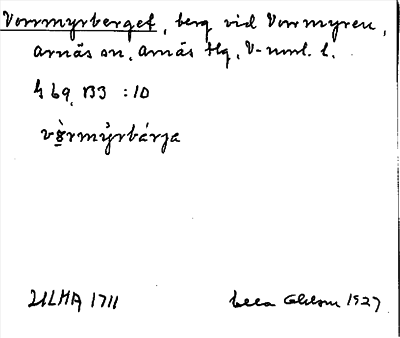 Vorrmyrberget, berg vid Vorrmyren,
Arnäs sn, Arnäs tlg, V-nml. l.
4 bg, 133 :10
vò̱rmy̆rbárja
ULMA 1711
1927